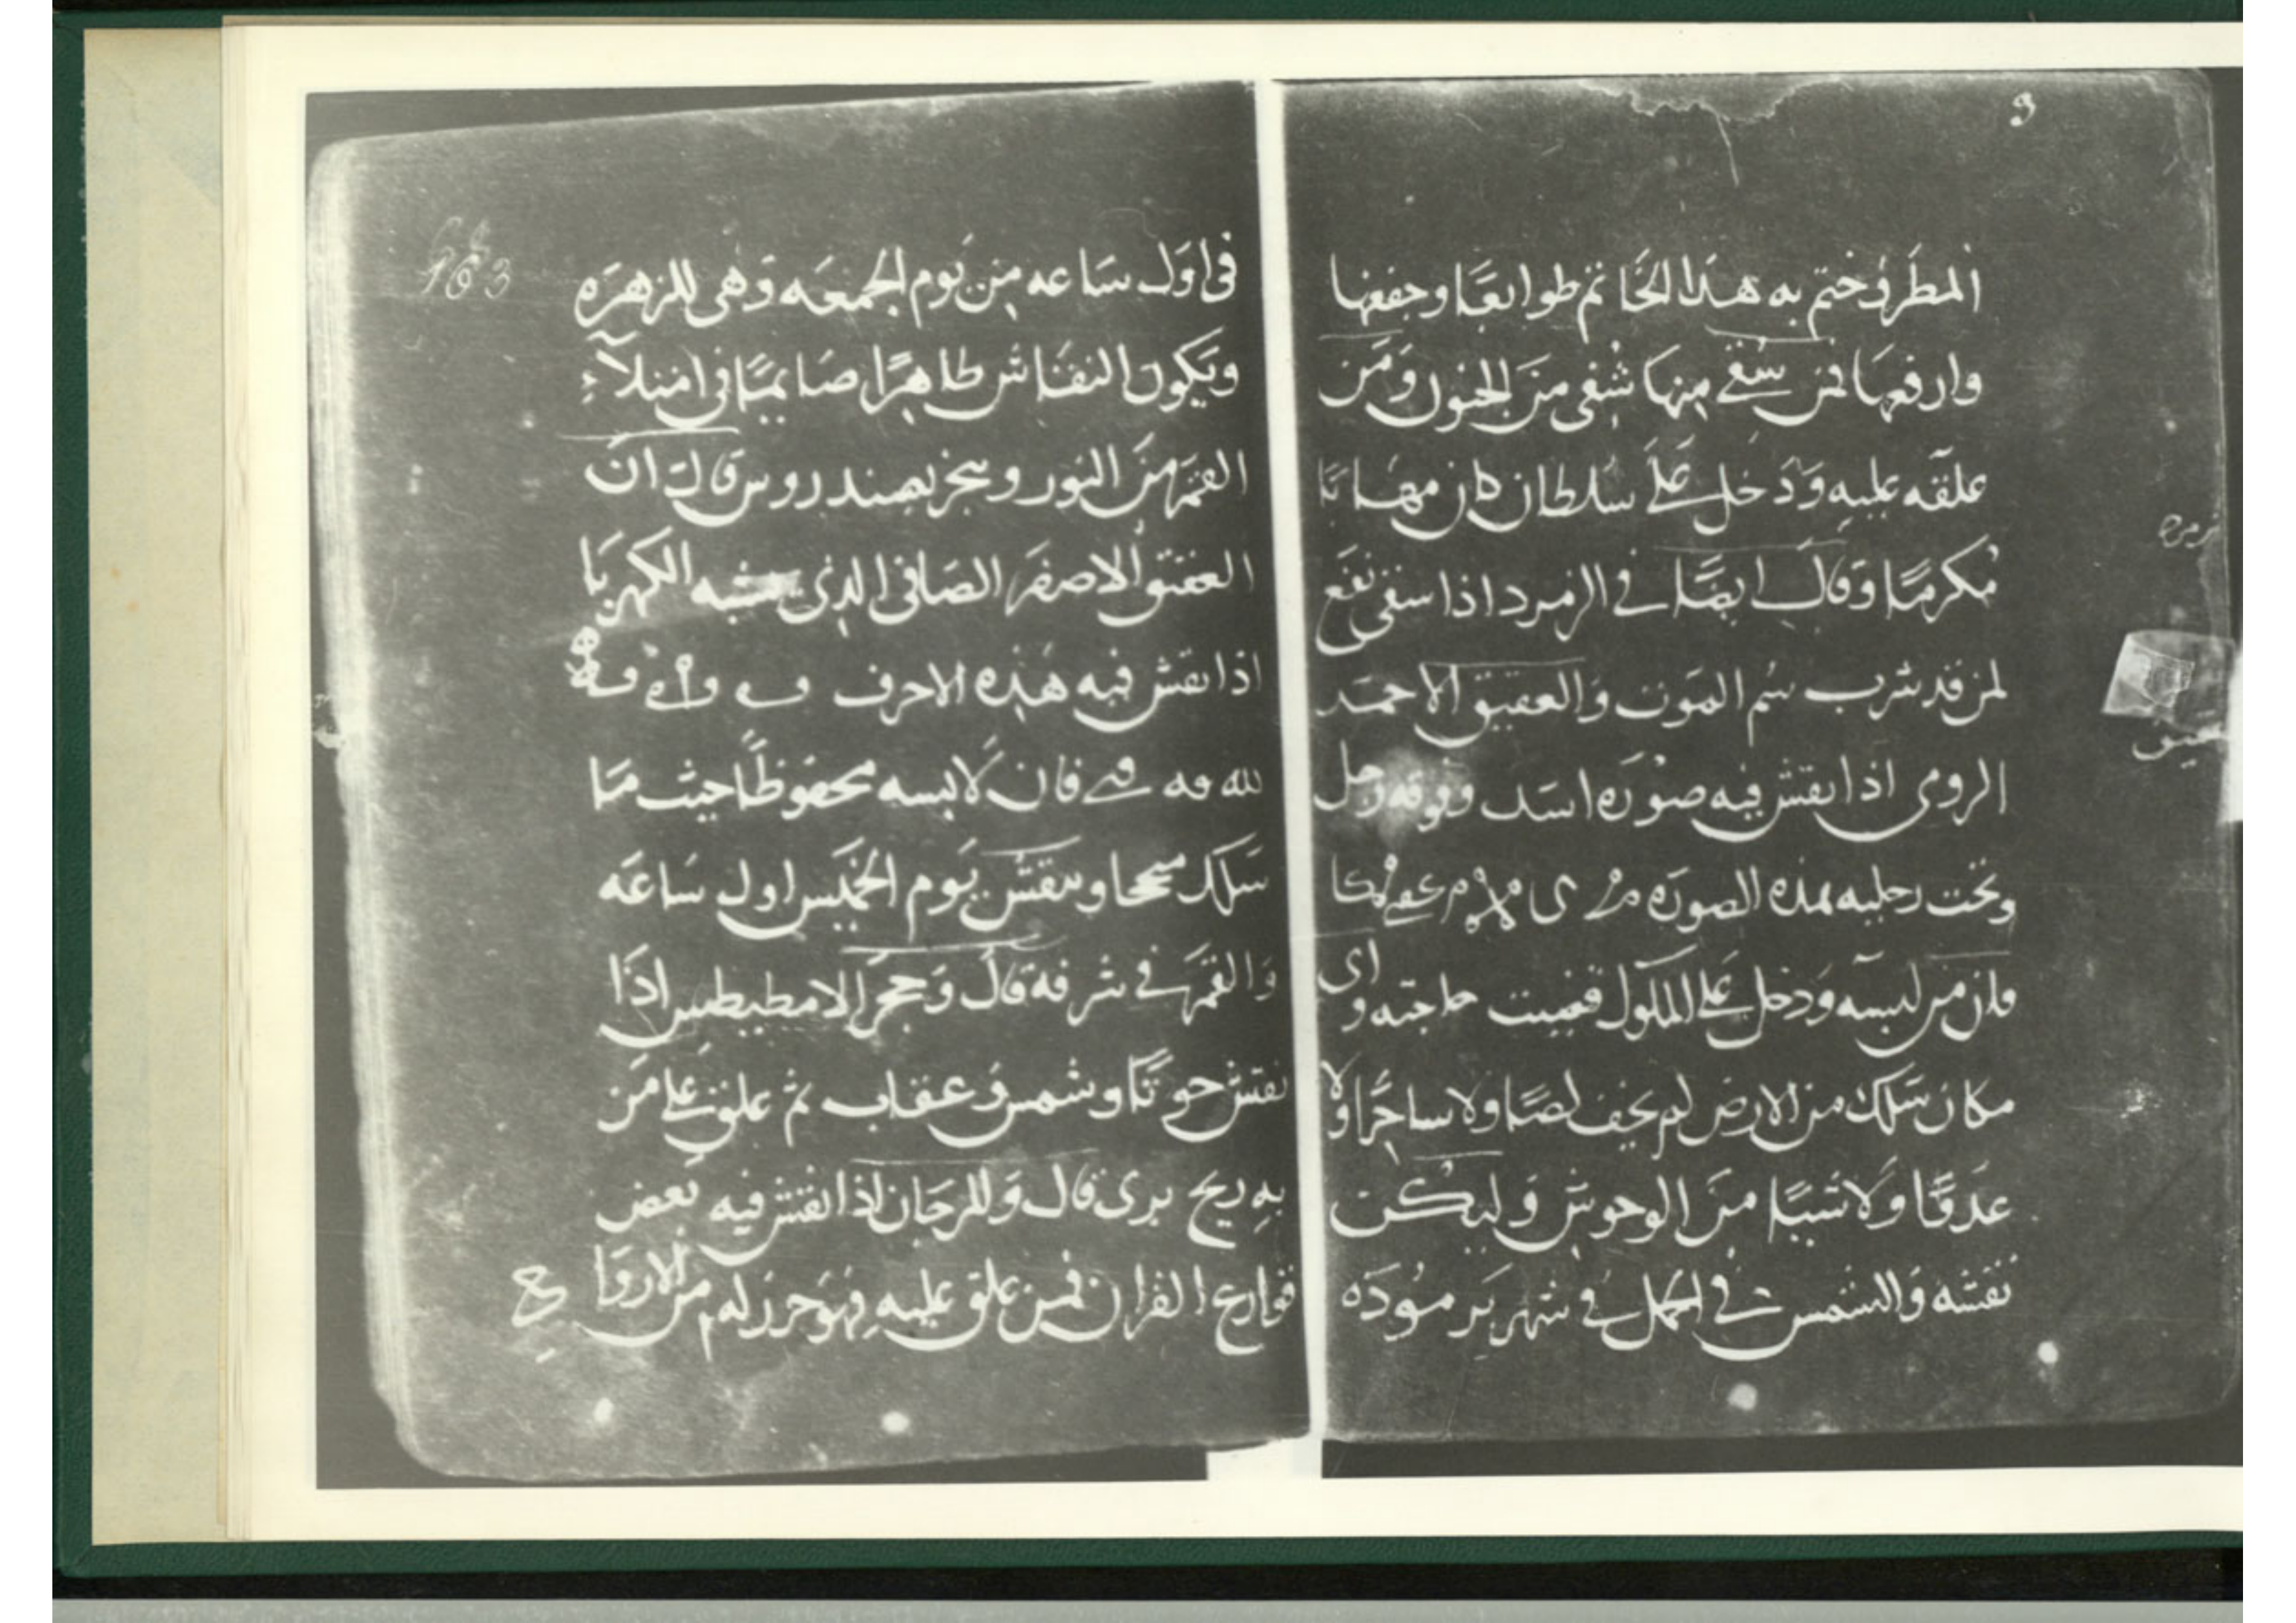 المطر وختم به هذا الخاتم طوابعا وجففها
وارفعها فمن سقى منها شفى من الجنون ومن
علقه عليه ودخل على سلطان كان مهابا
مكرما وقال ايضا في الزمرد اذا سقى نفع
لمن قد شرب سم الموت والعقيق الاحمر
الرومى اذا نقش فيه صوره اسد وفوقه رجل
وتحت رجليه بهذه الصوره
فان من لبسه ودخل على الملوك قضيت حاجته واى
مكان سلك من الارض لم يخف لصا ولا ساحرا ولا
عدوا ولا شيا من الوحوش وليكن
نقشه والشمس في الحمل في شهر برموده
في اول ساعه من يوم الجمعه وهى للزهره
ويكون النقاش طاهرا صايما في امتلاء
القمر من النور وبخر بصندروس قال ان
العقيق الاصفر الصافى الذى يشبه الكهربا
اذا نقش فيه هذه الاحرف
لله فان لابسه محفوظا حيث ما
سلك وينقش يوم الخميس اول ساعه
والقمر في شرفه قال وحجر الامطيطس اذا
نقش حوتا وشمس وعقاب ثم علق على من
به ريح برى قال والمرجان اذا نقش فيه بعض
قوارع القران فمن علق عليه فهو حرز له من الارواح